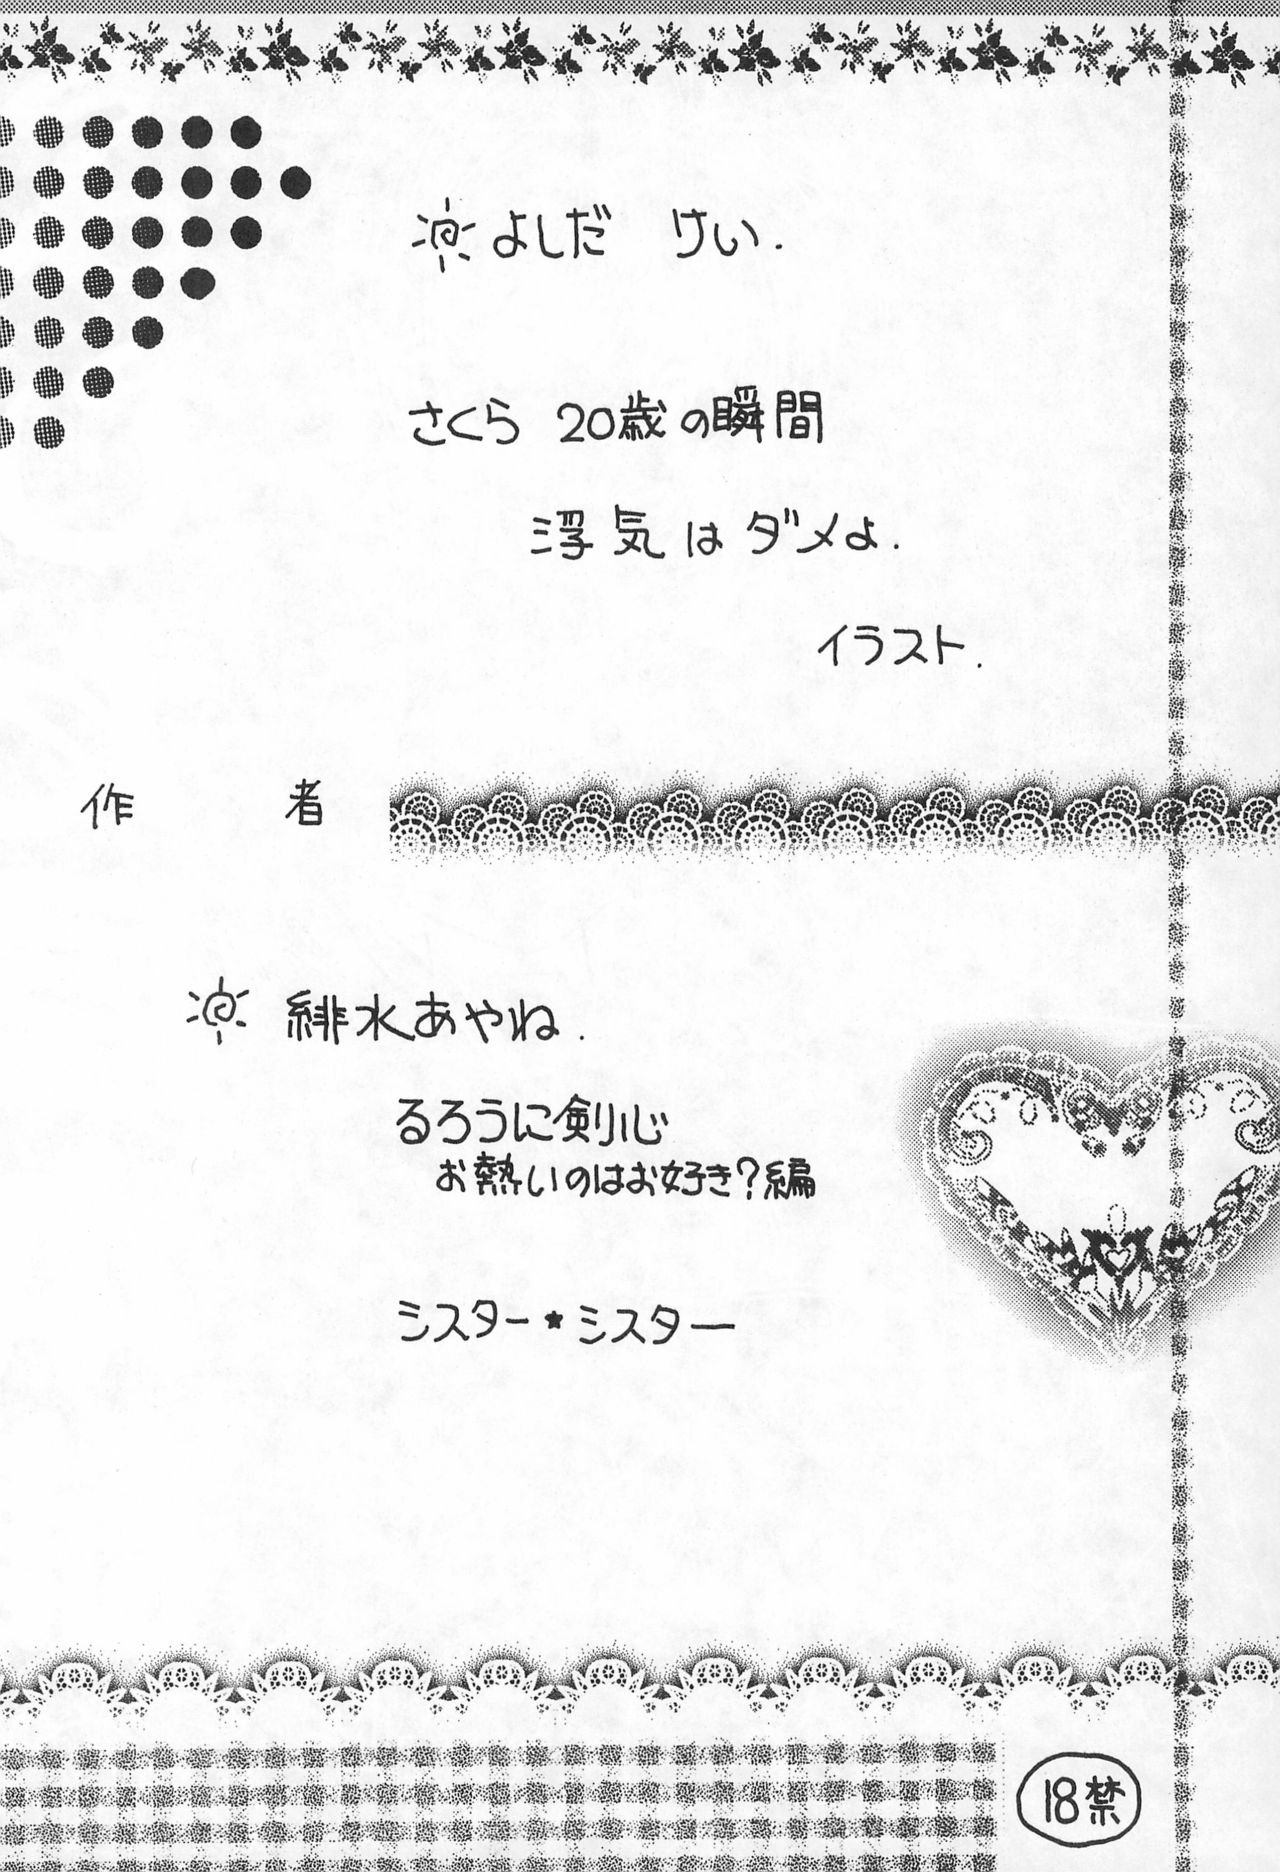 よしだ けい.
さくら 20歳の瞬間
浮気はダメよ.
イラスト.
作 者
緋水あやね.
るろうに剣心
お熱いのはお好き?編
シスター★シスター
18禁